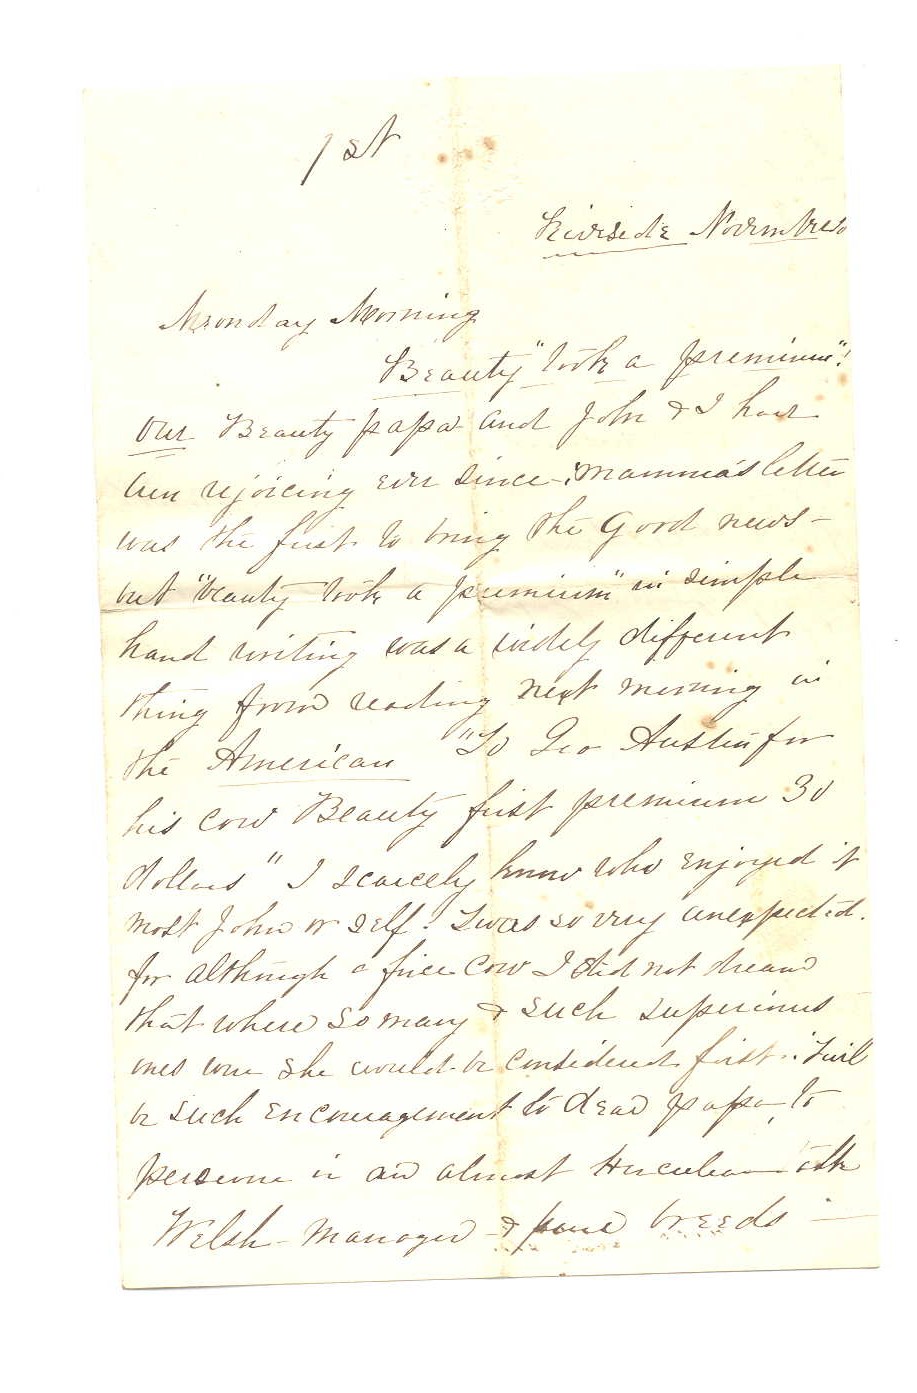 1st
Riverside November 10
Monday Morning
Beauty "took a premium"!
our Beauty papa and John & I have
been rejoicing ever since - Mamma's letter
was the first to bring the good news -
but "beauty took a premium" in simple
hand writing was a widely different
thing from reading next morning in
the American "To Geo Austin for
his cow Beauty first premium 30
dollars" I scarcely know who enjoyed it
most John or self! Twas so very unexpected.
for although a fine cow I did not dream
that where so many & such superious
ones were she would be considered first. Twill
be such encouragement to dear papa to
persevere in an almost Herculean
Welsh - Manager & pure breeds -